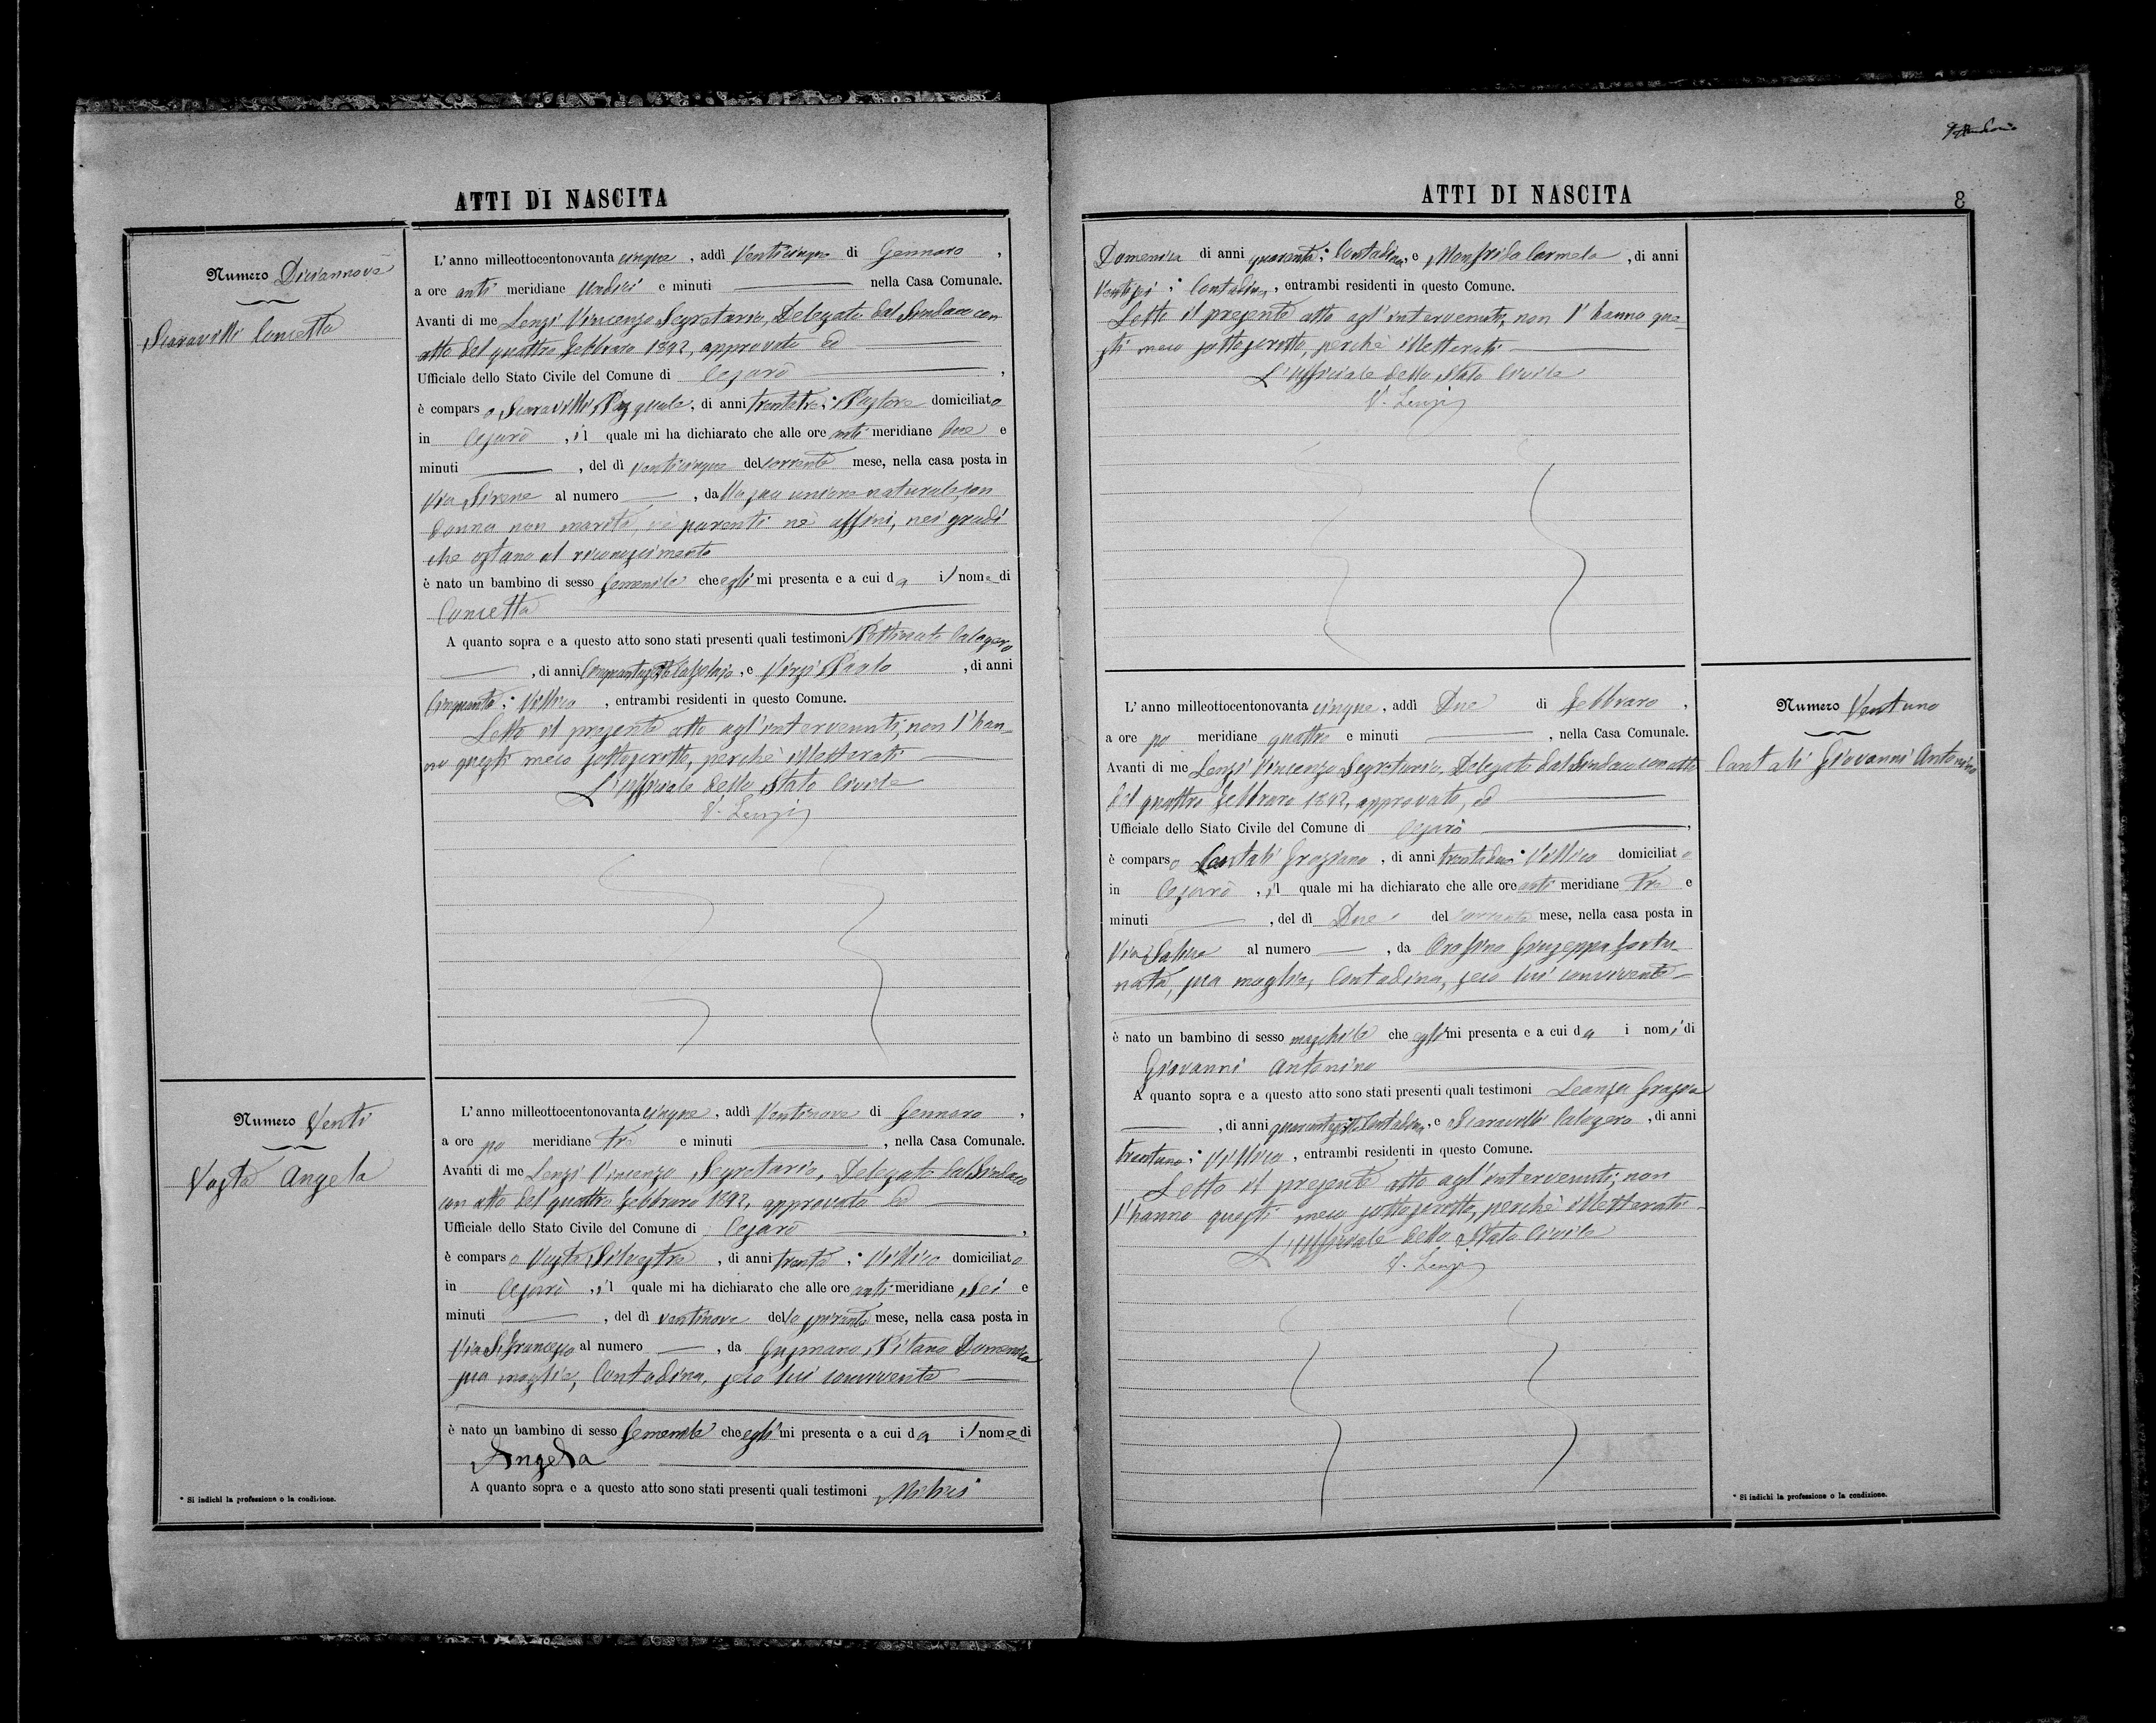 ATTI DI NASCITA
Numero Diciannove
Sciaravilli Concetta
L'anno milleottocentonovanta cinque, addì Venticinque di Gennaro,
a ore anti meridiane Undici e minuti nella Casa Comunale.
Avanti di me Lenzi Vincenzo Segretario, Delegato dal Sindaco con
atto del quattro Febbraro 1892, approvato ed
Ufficiale dello Stato Civile del Comune di Cesarò,
è comparso Sciaravilli Pasquale, di anni trentatre; Pastore domiciliato
in Cesarò, il quale mi ha dichiarato che alle ore anti meridiane due e
minuti , del dì venticinque del corrente mese, nella casa posta in
Via Sirene al numero , dalla sua unione naturale con
donna non marita, nè parenti nè affini, nei gradi
che ostano al riconoscimento
è nato un bambino di sesso femenile che egli mi presenta e a cui da il nome di
Concetta
A quanto sopra e a questo atto sono stati presenti quali testimoni Pettinato Calogero
, di anni Calzolajo, e Virzì Paolo, di anni
Cinquanta; Villico, entrambi residenti in questo Comune.
Letto il presente atto agl'intervenuti, non l'han-
no questi meco sottoscritto, perchè illetterati
L'Ufficiale dello Stato Civile
V. Lenzi
Numero Venti
Vasta Angela
L'anno milleottocentonovanta cinque, addì Ventinove di Gennaro,
a ore po meridiane Tre e minuti , nella Casa Comunale.
Avanti di me Lenzi Vincenzo Segretario, Delegato dal Sindaco
con atto del quattro Febbraro 1892, approvato ed
Ufficiale dello Stato Civile del Comune di Cesarò,
è comparso Vasta Silvestro, di anni trenta; Villico domiciliato
in Cesarò, il quale mi ha dichiarato che alle ore anti meridiane Sei e
minuti , del dì ventinove dello spirante mese, nella casa posta in
Via S. Francesco al numero , da Gusmano Pitano Domenica
sua moglie, Contadina, seco lui convivente
è nato un bambino di sesso femenile che egli mi presenta e a cui da il nome di
Angela
A quanto sopra e a questo atto sono stati presenti quali testimoni
* Si indichi la professione o la condizione.
ATTI DI NASCITA
8
Domenica di anni quaranta; Contadina, e Manfrida Carmela, di anni
Ventisei; Contadina, entrambi residenti in questo Comune.
Letto il presente atto agl'intervenuti, non l'hanno que-
sti meco sottoscritto, perchè illetterati
L'Ufficiale dello Stato Civile
V. Lenzi
Numero Ventuno
Cantali Giovanni Antonino
L'anno milleottocentonovanta cinque, addì Due di Febbraro,
a ore po meridiane quattro e minuti , nella Casa Comunale.
Avanti di me Lenzi Vincenzo Segretario, Delegato dal Sindaco con atto
del quattro Febbraro 1892, approvato, ed
Ufficiale dello Stato Civile del Comune di Cesarò,
è comparso Cantali Graziano, di anni trentadue; Villico domiciliato
in Cesarò, il quale mi ha dichiarato che alle ore anti meridiane Tre e
minuti , del dì Due del corrente mese, nella casa posta in
Via al numero , da Giuseppa Fortu-
nata, sua moglie, Contadina, seco lui convivente
è nato un bambino di sesso maschile che egli mi presenta e a cui da i nomi di
Giovanni Antonino
A quanto sopra e a questo atto sono stati presenti quali testimoni Leanza Grazia
, di anni Contadina, e Sciaravilli Calogero, di anni
trentuno; Villico, entrambi residenti in questo Comune.
Letto il presente atto agl'intervenuti, non
l'hanno questi meco sottoscritto, perchè illetterati
L'Ufficiale dello Stato Civile
V. Lenzi
* Si indichi la professione o la condizione.